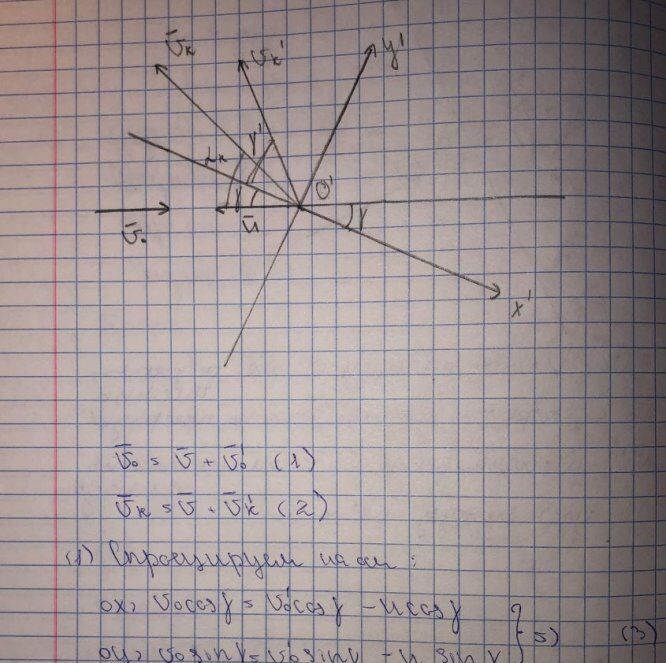 v̄ₖ
v̄ₖ'
y'
αₖ γ'
O'
γ
v̄₀
γ ū
x'
v̄₀ = v̄ + v̄₀' (1)
v̄ₖ = v̄ + v̄ₖ' (2)
(1) Спроецируем на оси:
ox, v₀cosγ = v₀'cosγ - u cosγ
oy, v₀sinγ = v₀'sinγ - u sinγ } => (3)